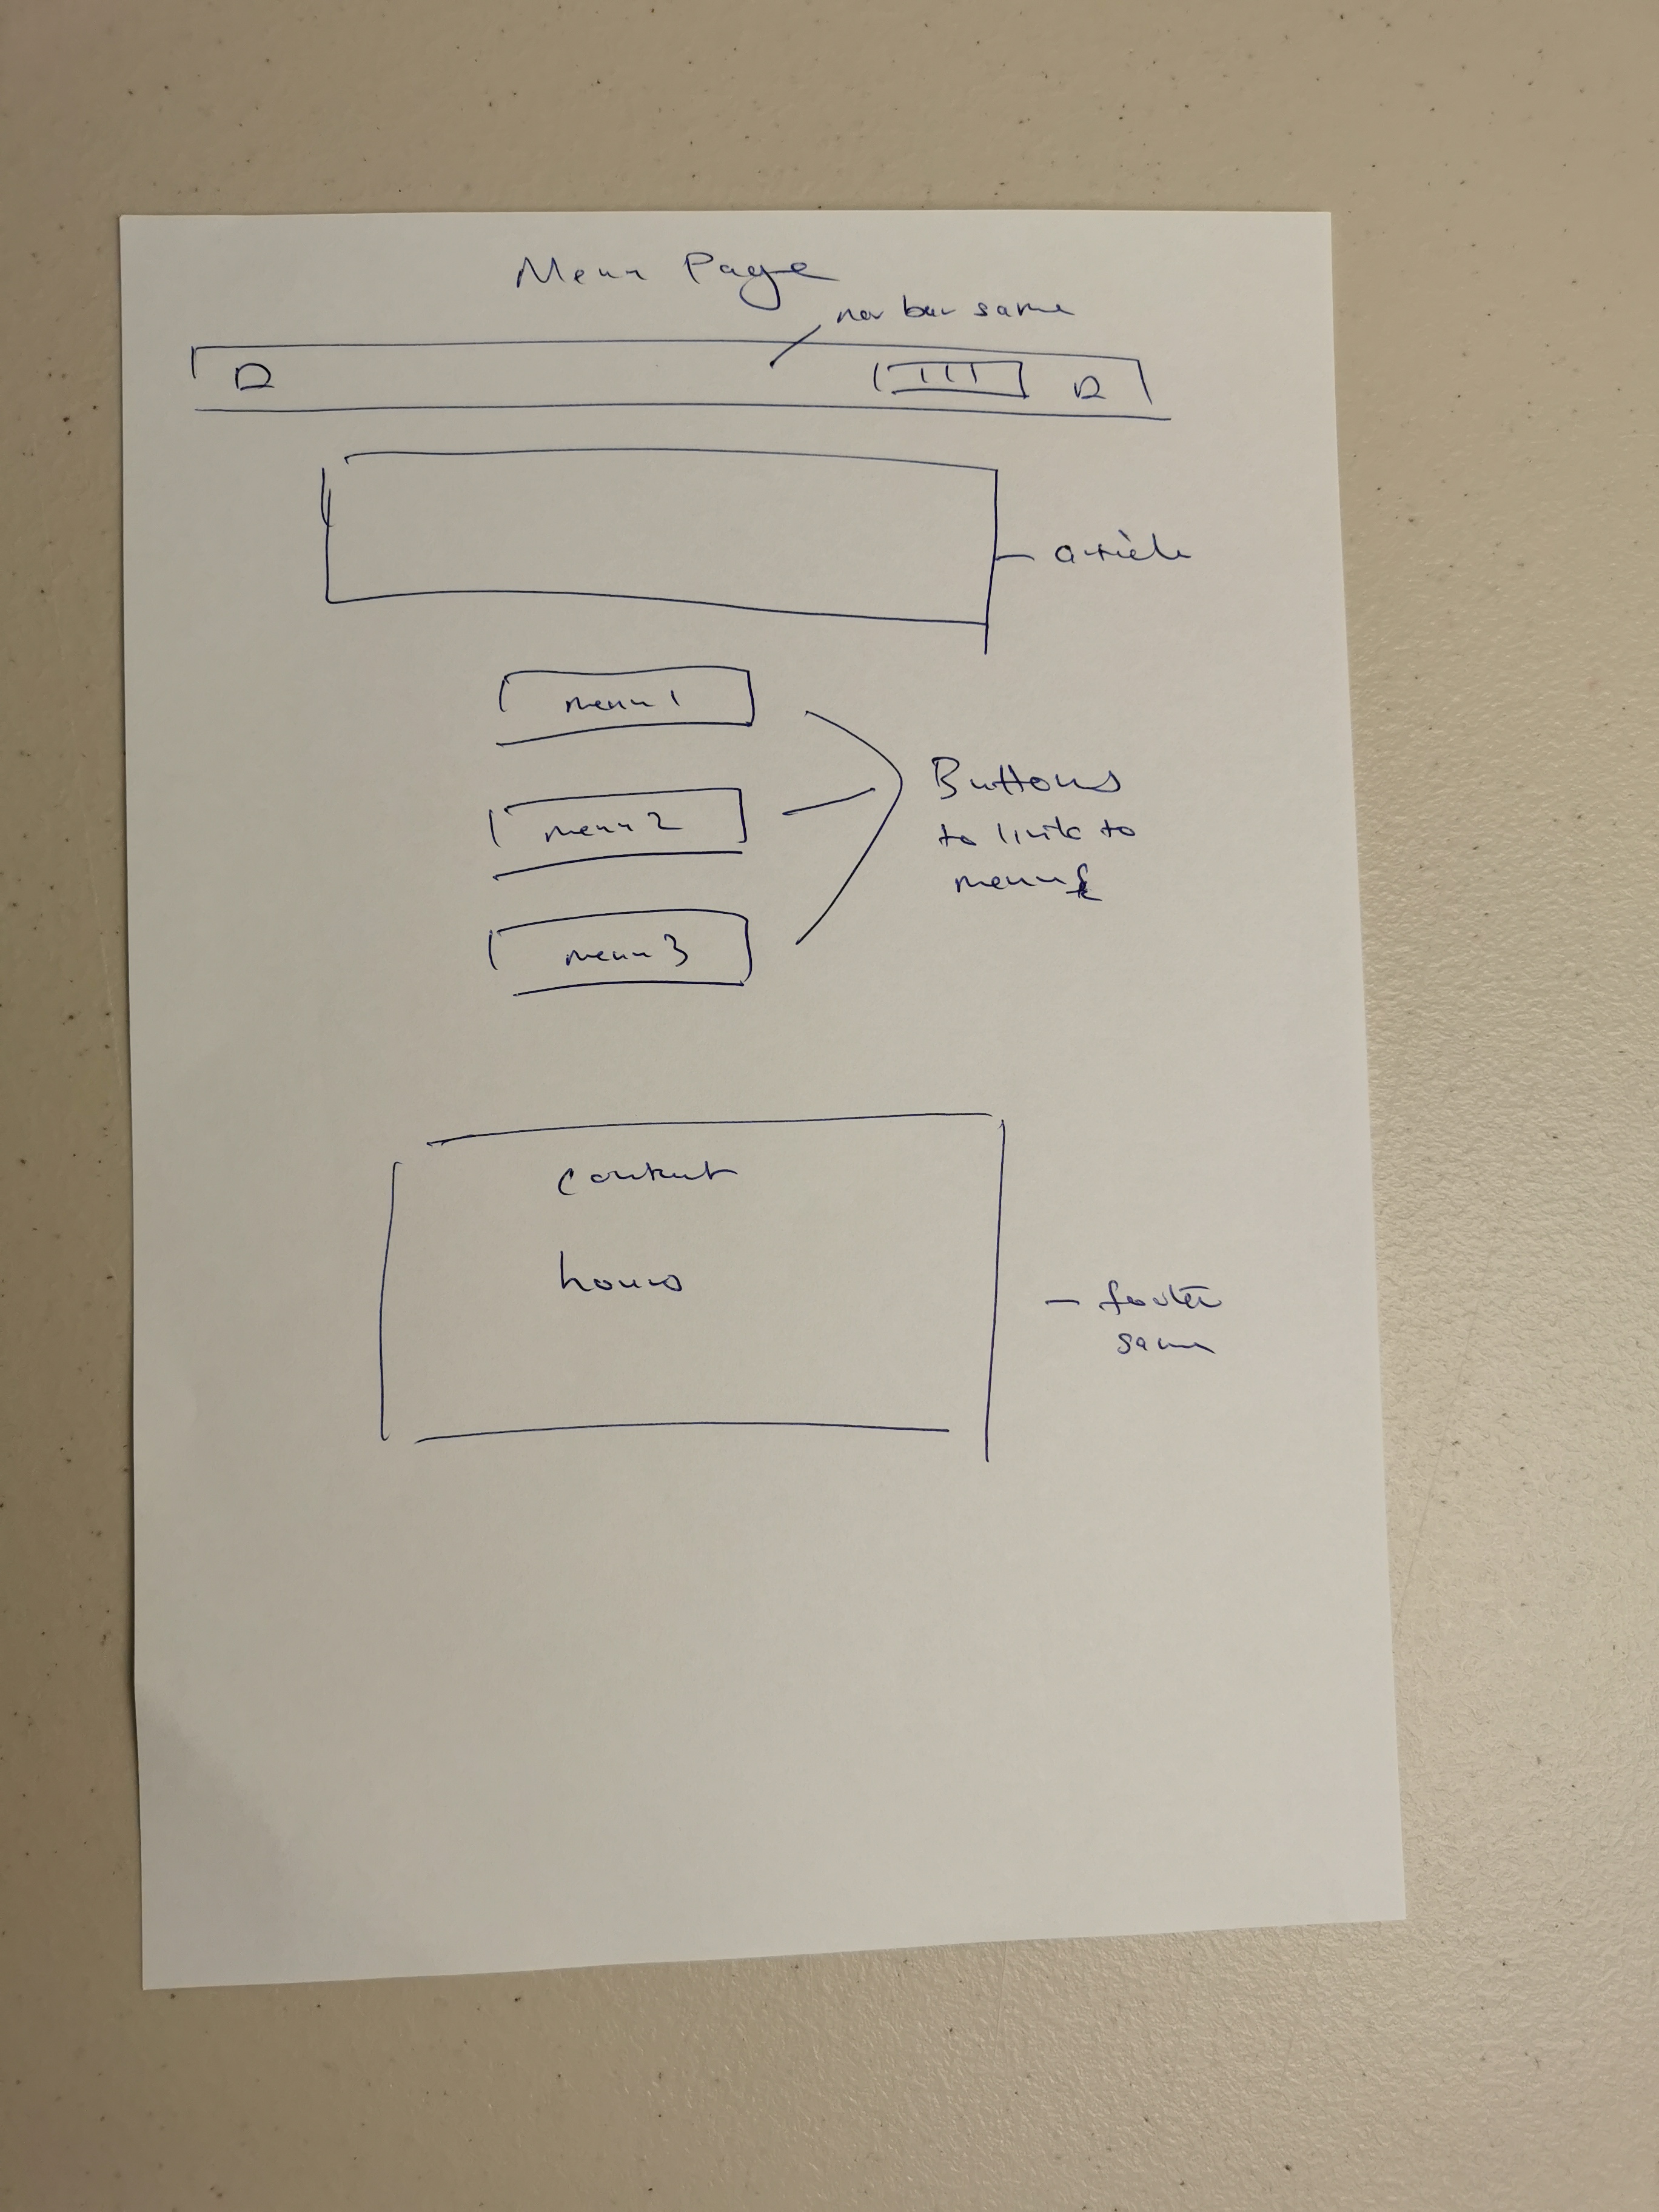 Menu Page
nav bar same
article
menu 1
menu 2
menu 3
Buttons
to link to
menus
content
hours
footer
same